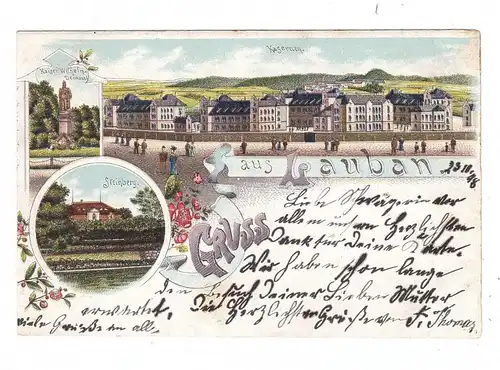 Kaiser Wilhelm-
Denkmal
Kasernen.
Steinberg.
Gruss
aus Lauban
Liebe Schwägerin vor
allem unsern Herzlichsten
Dank für deine Karte.
Wir haben schon lange
den Besuch Deiner Lieben Mutter
erwartet,
Die Herzlichsten Grüße von F. Thomas
viele Grüße an all.